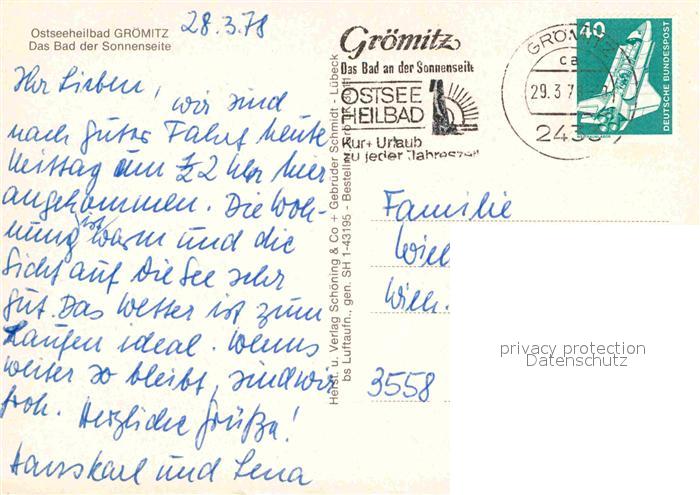 Ostseeheilbad GRÖMITZ
Das Bad der Sonnenseite
28.3.78
Ihr Lieben, wir sind
nach guter Fahrt heute
Mittag um ½ 2 Uhr hier
angekommen. Die Woh-
nung ist warm und die
Sicht auf die See sehr
gut. Das Wetter ist zum
Laufen ideal. Wenns
weiter so bleibt, sind wir
froh. Herzliche Grüße!
Hanskarl und Lena
Herst. u. Verlag Schöning & Co + Gebrüder Schmidt - Lübeck
bs Luftaufn., gen. SH 1-43195 - Bestellnr.
Grömitz
Das Bad an der Sonnenseite
OSTSEE
HEILBAD
Kur + Urlaub
zu jeder Jahreszeit
GRÖMITZ
29.3.7
243
40
DEUTSCHE BUNDESPOST
Familie
Will
Wilh.
3558
privacy protection
Datenschutz